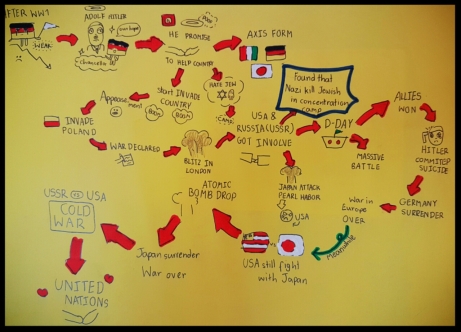 AFTER WW1
WEAK
ADOLF HITLER
Chancellor
HE PROMISE
TO HELP COUNTRY
AXIS FORM
HATE JEW
CAMP
Start INVADE
COUNTRY
BOOM
BOOM
Appease
ment
INVADE
POLAND
WAR DECLARED
BLITZ IN
LONDON
USA &
RUSSIA(USSR)
GOT INVOLVE
Found that
Nazi kill Jewish
in concentration
camp
D-DAY
MASSIVE
BATTLE
ALLIES
WON
HITLER
COMMITED
SUICIDE
GERMANY
SURRENDER
War in
Europe
OVER
Meanwhile
JAPAN ATTACK
PEARL HARBOR
USA
USA still fight
with Japan
ATOMIC
BOMB DROP
Japan surrender
War over
USSR VS USA
COLD
WAR
UNITED
NATIONS